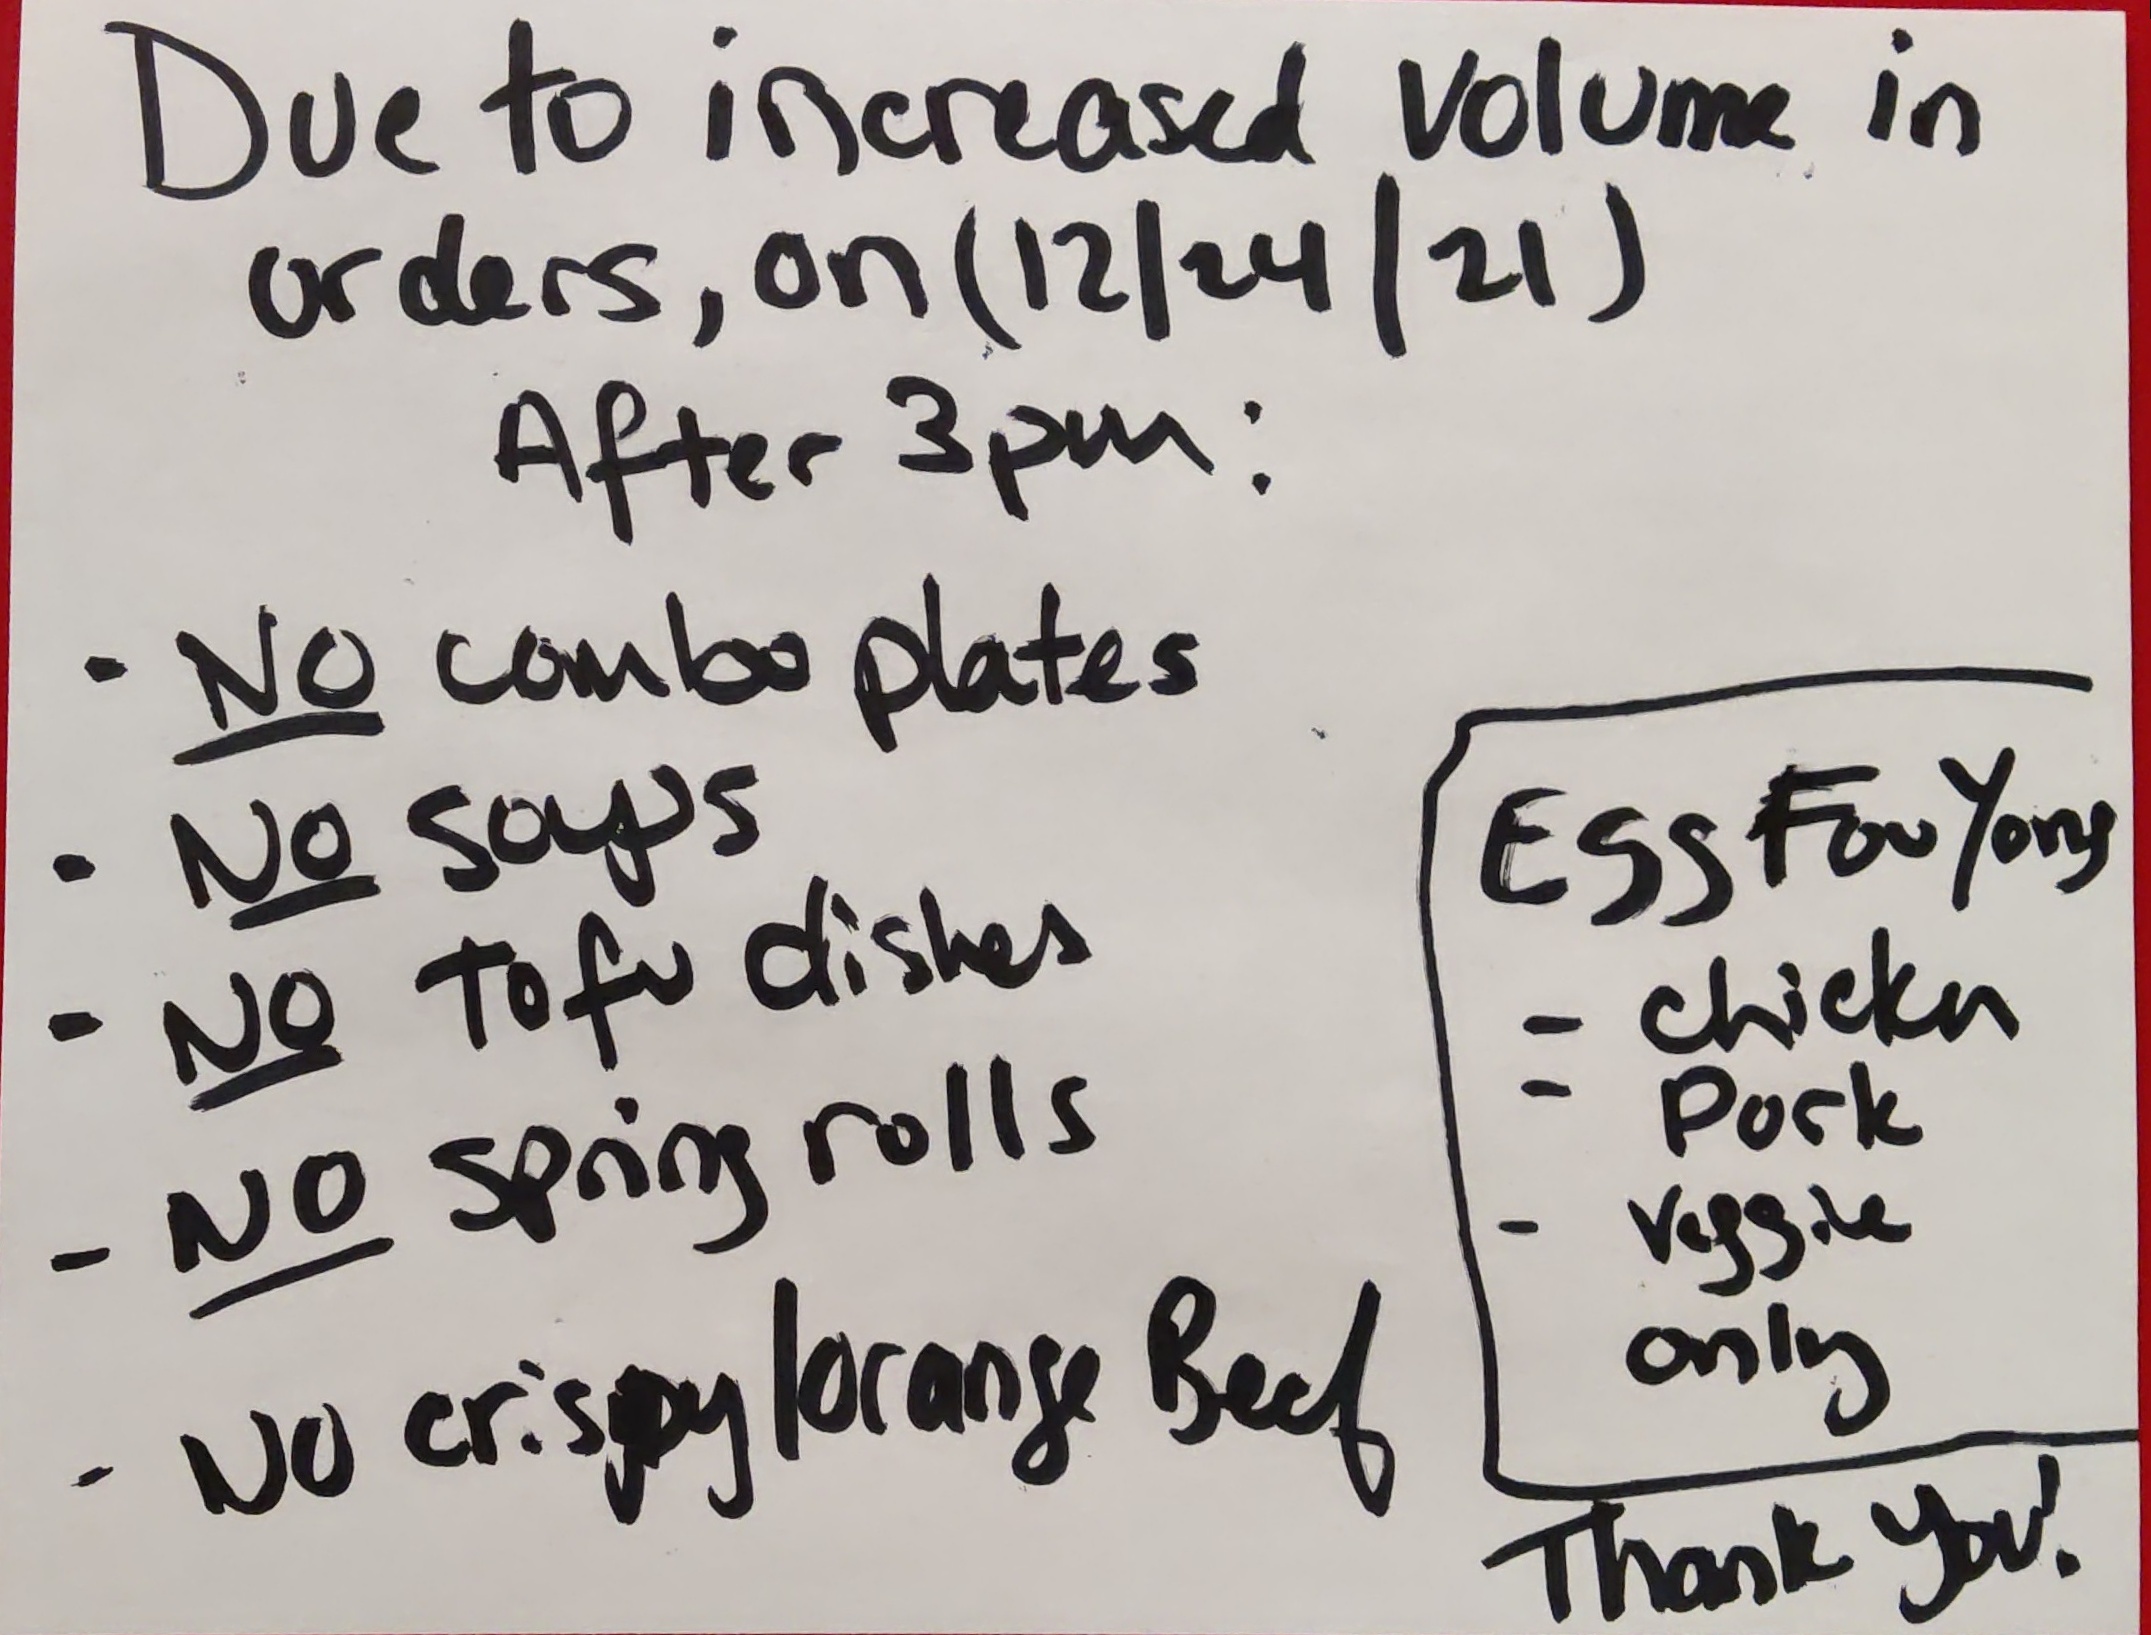 Due to increased volume in
orders, on (12/24/21)
After 3pm:
- NO combo plates
- NO soups
- NO Tofu dishes
- NO spring rolls
- NO crispy/orange Beef
Egg Fou Yong
- chickn
- Pork
- Veggie
only
Thank you!